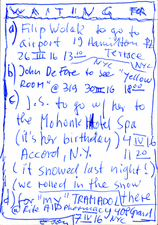 WAITING FOR
a) Filip Wolak to go to
airport 19 Hamilton PL
26 III 16 13 10 Terrace
NYC NYC
b) John DeFore to see "Yellow
ROOM" @ 319 30 III 16 18 00
c) J.S. to go w/ her to
the Mohonk Hotel Spa
(it's her birthday) 4 IV 16
Accord, N.Y. 4 20
(it snowed last night!)
(we rolled in the snow)
d) for "my" TRAMADOL there
@ Rite AID pharmacy
7 IV 16 NYC